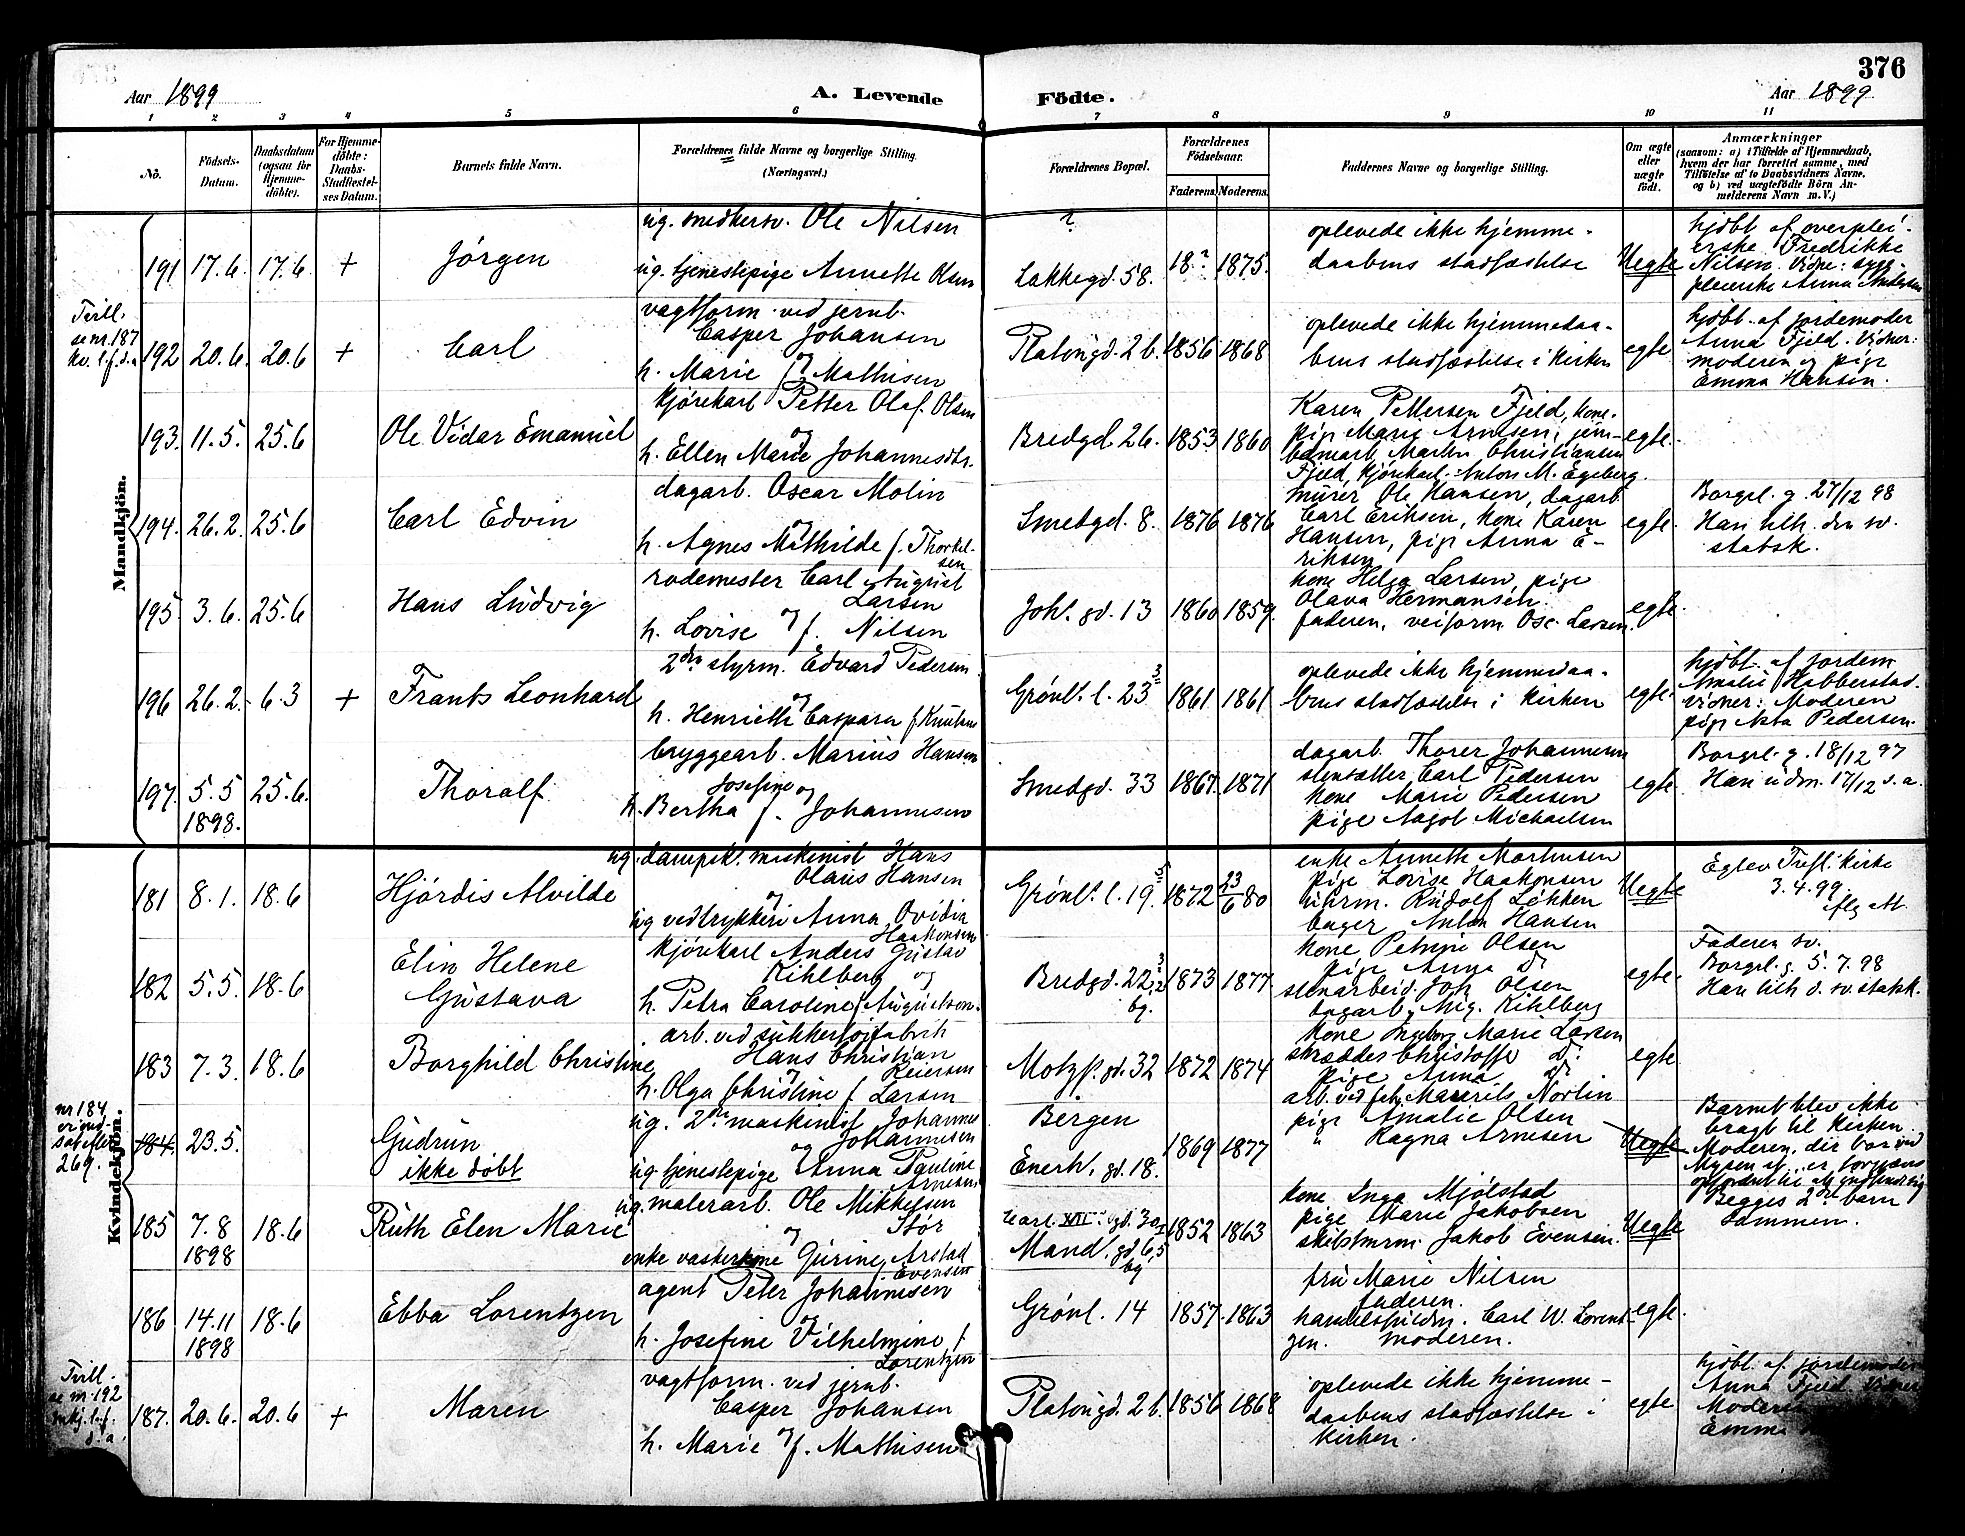 376
Aar 1899
A. Levende Födte.
Aar 1899
1 2 3 4 5 6 7 8 9 10 11
No.
Födsels-Datum.
Daabsdatum (ogsaa for Hjemme-döbte).
For Hjemme-döbte: Daabs-Stadfæstel-ses Datum.
Barnets fulde Navn.
Forældrenes fulde Navne og borgerlige Stilling.
(Næringsvei.)
Forældrenes Bopæl.
Forældrenes Födselsaar.
Faderens. Moderens.
Faddernes Navne og borgerlige Stilling.
Om ægte eller uægte födt.
Anmærkninger
(saasom: a) i Tilfælde af Hjemmedaab,
hvem der har forrettet samme, med
Tilföielse af to Daabsvidners Navne,
og b) ved uægtefödte Börn An-
melderens Navn m.V.)
Mandkjön.
191 17.6. 17.6 + Jørgen
ug. smedkersv. Ole Nilsen
ug. tjenestepige Annette Olsen
?
Lakkegd. 58. 18? 1875.
oplevede ikke hjemme-
daabens stadfæstelse
Uegte
hjdbt. af overplei-
erske Fredrikke
Nilsen. Vidne: syge-
pleierske Anna Andersen
Tvill.
se nr. 187
kv. l. f. d. a
192 20.6. 20.6 + Carl
vagtform. ved jernb.
Casper Johansen
og
h. Marie f. Mathisen
Platougd. 2b. 1856 1868
oplevede ikke hjemmedaa-
bens stadfæstelse i kirken
egte
hjdbt. af jordemoder
Anna Fjeld. Vidner:
moderen og pige
Emma Hansen.
193. 11.5. 25.6 Ole Vidar Emanuel
kjørekarl Petter Olaf Olsen
og
h. Ellen Marie Johannesdtr.
Bredgd. 26. 1853 1860
Karen Pettersen Fjeld, kone.
pige Marie Arnesen, jern-
Martin Christiansen
Fjeld, kjørekarl Anton M. Egeberg.
egte.
194. 26.2. 25.6 Carl Edvin
dagarb. Oscar Molin
og
h. Agnes Mathilde f. Thorkel-
sen
Smedgd. 8. 1876 1876
murer Ole Hansen, dagarb
Carl Eriksen, kone Karen
Hansen, pige Anna E-
riksen
egte.
Borgrl. g. 27/12 98
Han tilh. den sv.
statsk.
195. 3.6. 25.6 Hans Ludvig
rodemester Carl August
Larsen
og
h. Lovise f. Nilsen
Johs. gd. 13 1860 1859.
kone Helga Larsen, pige
Olava Hermansen.
faderen, veiform Osc. Larsen.
egte.
196 26.2. 6.3 + Frants Leonhard
2den styrm. Edvard Pedersen
og
h. Henriette Caspara f Knutsen
Grønl. l. 23 3 1861 1861
oplevede ikke hjemmedaa-
bens stadfæstelse i kirken
egte.
hjdbt. af jordem
Amalie Habberstad.
vidner: Moderen
pige Asta Pedersen.
197. 5.5 25.6. Thoralf
1898.
bryggearb. Marius Hansen
Josefine og
h. Bertha f. Johannesen
Smedgd. 33 1867. 1871
dagarb. Thorer Johannesen
stensætter Carl Pedersen
kone Marie Pedersen
pige Aagot Michaelsen
egte.
Borgrl. g. 18/12 97
Han udm. 17/12 s. a.
Kvindekjön.
181 8.1. 18.6 Hjórdis Alvilde
ug. dampsk. maskinist Hans
Olaus Hansen
og
ug vedtrykkeri Anna Ovidia
Haakensen
Grønl. l. 19. 5 1872 23/6 80
enke Annette Martinsen
pige Lovise Haakonsen
Rudolf Løkken
bager Anton Hansen
Uegte
Egtev. Trefl. kirke
3.4.99.
182 5.5. 18.6 Elin Helene
Gustava
kjørekarl Anders Gustav
Kihlberg og
h. Petra Caroline f. Augustsen.
Bredgd. 22 3 bg. 1873 1877
kone Petrine Olsen
pige Anna Do
stenarbeid. Joh. Olsen
dagarb. Aug. Kihlberg
egte.
Faderen sv.
Borgrl. g. 5.7.98
Han tilh d. sv. statsk.
183 7.3. 18.6 Borghild Christine
arb. ved sukkertøifabrik
Hans Christian
og Reiersen
h. Olga Christine f Larsen
Motzf. gd. 32 1872 1874
kone Ingeborg Marie Larsen
skrædder Christoffer Do
pige Anna Do
arb. ved Maurits Norlin
egte
nr 184
er ind-
sat efter
269.
184. 23.5. Gudrun
ikke døbt
ug. 2den maskinist Johannes
og Johannesen
ug tjenestepige Anna Pauline
Arnesen
Bergen
Enerh. gd. 18. 1869 1877
pige Amalie Olsen
" Ragna Arnesen
Uegte
Barnet blev ikke
bragt til kirken.
Moderen, der bor ved
Mysen st., er forgjæves
Begges 2det barn
sammen.
185 7.8 18.6 Ruth Elen Marie
1898
ug. malerarb. Ole Mikkelsen
og Stor
enke vaskerkone Gurine Arstad
Evensen
Carl XII gd. 30
Mand. gd. 6, 5
bg 1852 1863
kone Inga Mjølstad
pige Marie Jakobsen
skibstørm. Jakob Evensen.
Uegte
186 14.11 18.6 Ebba Lorentzen
1898
agent Peter Johannesen
og
h. Josefine Vilhelmine f
Lorentzen
Grønl. 14 1857. 1863
fru Marie Nilsen
faderen.
handelsfuldm. Carl W. Lorent-
zen. Moderen.
egte.
Tvill.
se nr. 192
mkj. l. f.
d. a.
187. 20.6. 20.6 + Maren
vagtform. ved jernb.
Casper Johansen
og
h. Marie f. Mathisen
Platougd. 2b. 1856 1868
oplevede ikke hjemme-
daabens stadfæstelse i
kirken.
egte
hjdbt. af jordemoder
Anna Fjeld. Vidner
Moderen
Emma